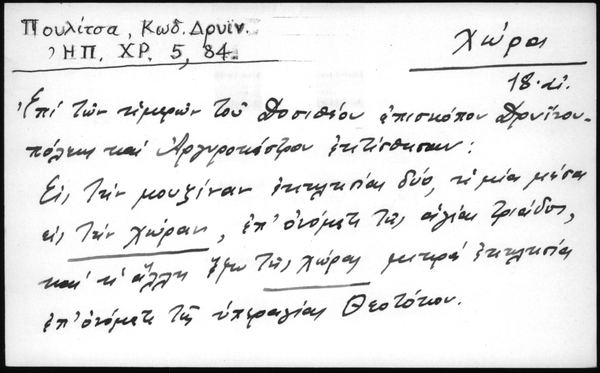 Πουλίτσα, Κωδ. Δρυϊν.
ἨΠ. ΧΡ. 5, 84.
Χώρα
18. αἰ.
Ἐπὶ τῶν ἡμερῶν τοῦ Δοσιθέου ἐπισκόπου Δρυϊνου-
πόλεως καὶ Ἀργυροκάστρου ἐκτίσθησαν:
Εἰς τὴν μουζίναν ἐκκλησίαι δύο, ἡ μία μέσα
εἰς τὴν χώραν, ἐπ' ὀνόματι τῆς ἁγίας τριάδος,
καὶ ἡ ἄλλη ἔξω τῆς χώρας μικρά ἐκκλησία
ἐπ' ὀνόματι τῆς ὑπεραγίας Θεοτόκου.